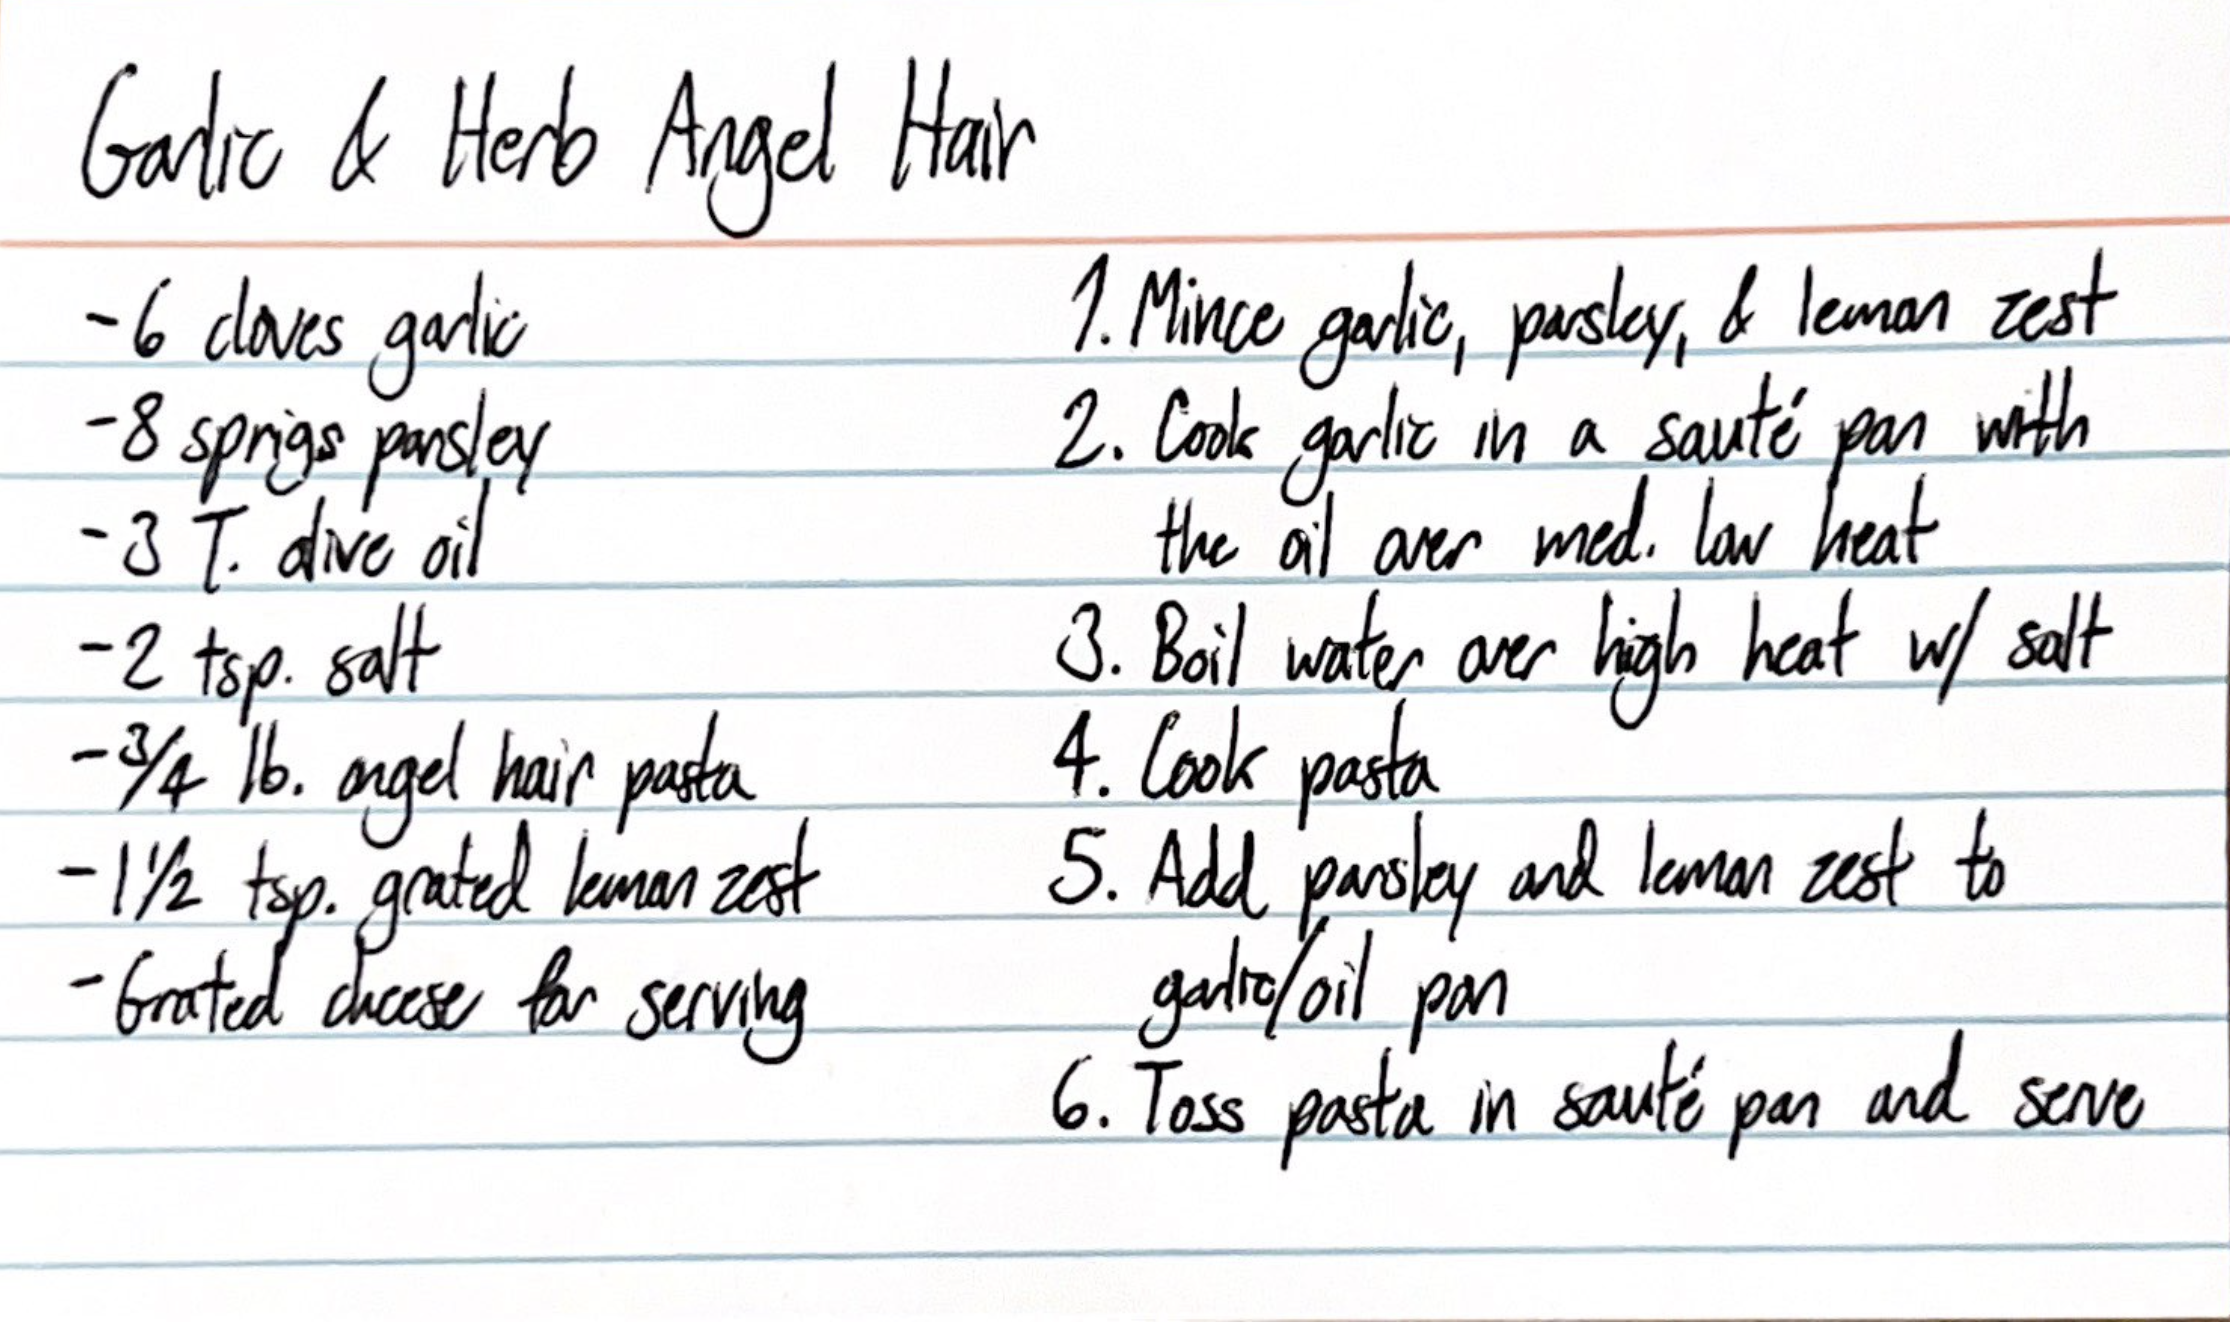 Garlic & Herb Angel Hair
-6 cloves garlic
-8 sprigs parsley
-3 T. olive oil
-2 tsp. salt
-3/4 lb. angel hair pasta
-1 1/2 tsp. grated lemon zest
-Grated cheese for serving
1. Mince garlic, parsley, & lemon zest
2. Cook garlic in a sauté pan with
the oil over med. low heat
3. Boil water over high heat w/ salt
4. Cook pasta
5. Add parsley and lemon zest to
garlic/oil pan
6. Toss pasta in sauté pan and serve